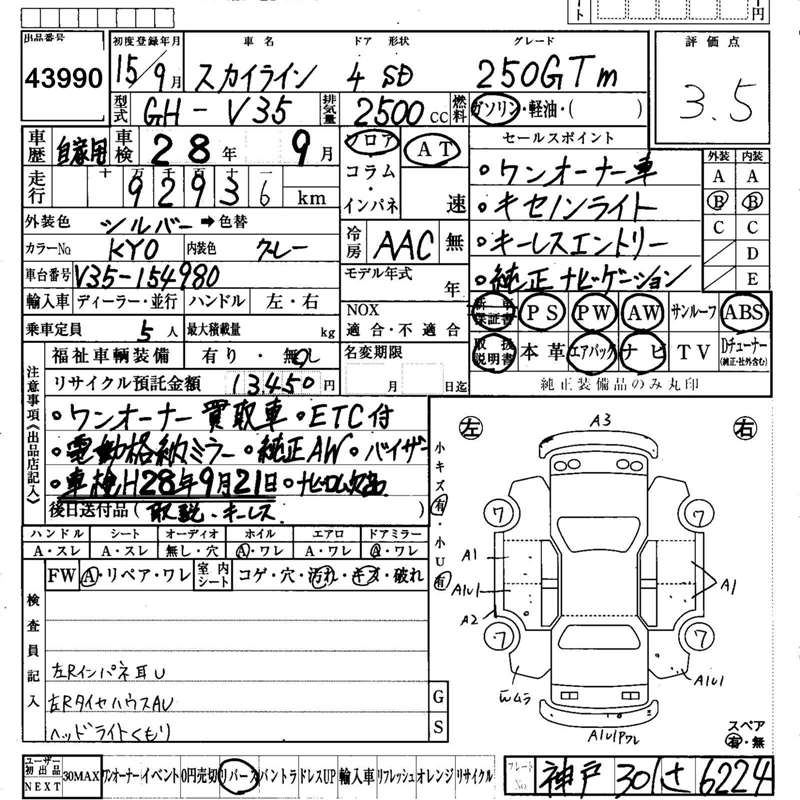 円
出品番号 初度登録年月 車名 ドア 形状 グレード 評価点
43990 15/9月 スカイライン 4 SD 250GTm 3.5
型式 GH-V35 排気量 2500cc 燃料 ガソリン・軽油・( )
車歴 自家用 車検 28年 9月 フロア AT セールスポイント
走行 十 万 千 百 十 92936 km コラム・インパネ 速
・ワンオーナー車
・キセノンライト
・キーレスエントリー
・純正ナビゲーション
外装 内装
A A
B B
C C
D
E
外装色 シルバー→色替 冷房 AAC 無
カラーNo KY0 内装色 グレー
車台番号 V35-154980 モデル年式 年
輸入車 ディーラー・並行 ハンドル 左・右 NOX 適合・不適合
乗車定員 5人 最大積載量 kg
新車保証書 PS PW AW サンルーフ ABS
取扱説明書 本革 エアバッグ ナビ TV Dチューナー (純正・社外含む)
純正装備品のみ丸印
福祉車輌装備 有り・無し 名変期限 月 日迄
リサイクル預託金額 13450円
注意事項《出品店記入》
・ワンオーナー買取車・ETC付
・電動格納ミラー・純正AW・バイザー
・車検H28年9月21日・ナビロム欠品
後日送付品( 取説・キーレス )
小キズ有・小U有
ハンドル シート オーディオ ホイル エアロ ドアミラー
A・スレ A・スレ 無し・穴 A・ワレ A・ワレ A・ワレ
FW A・リペア・ワレ 室内シート コゲ・穴・汚れ・キズ・破れ
検査員記入
左Rインパネ耳U
左RタイヤハウスAU
ヘッドライトくもり
G
S
左 右
A3
7 7
A1
A1U1
A2
A1
7 7
色ムラ
A1U1
A1U1Pワレ
スペア
有・無
ユーザー初出品NEXT 30MAX ワンオーナー イベント 0円売切 リバース バントラ ドレスUP 輸入車 リフレッシュ オレンジ リサイクル
プレートNo 神戸 301 さ 6224